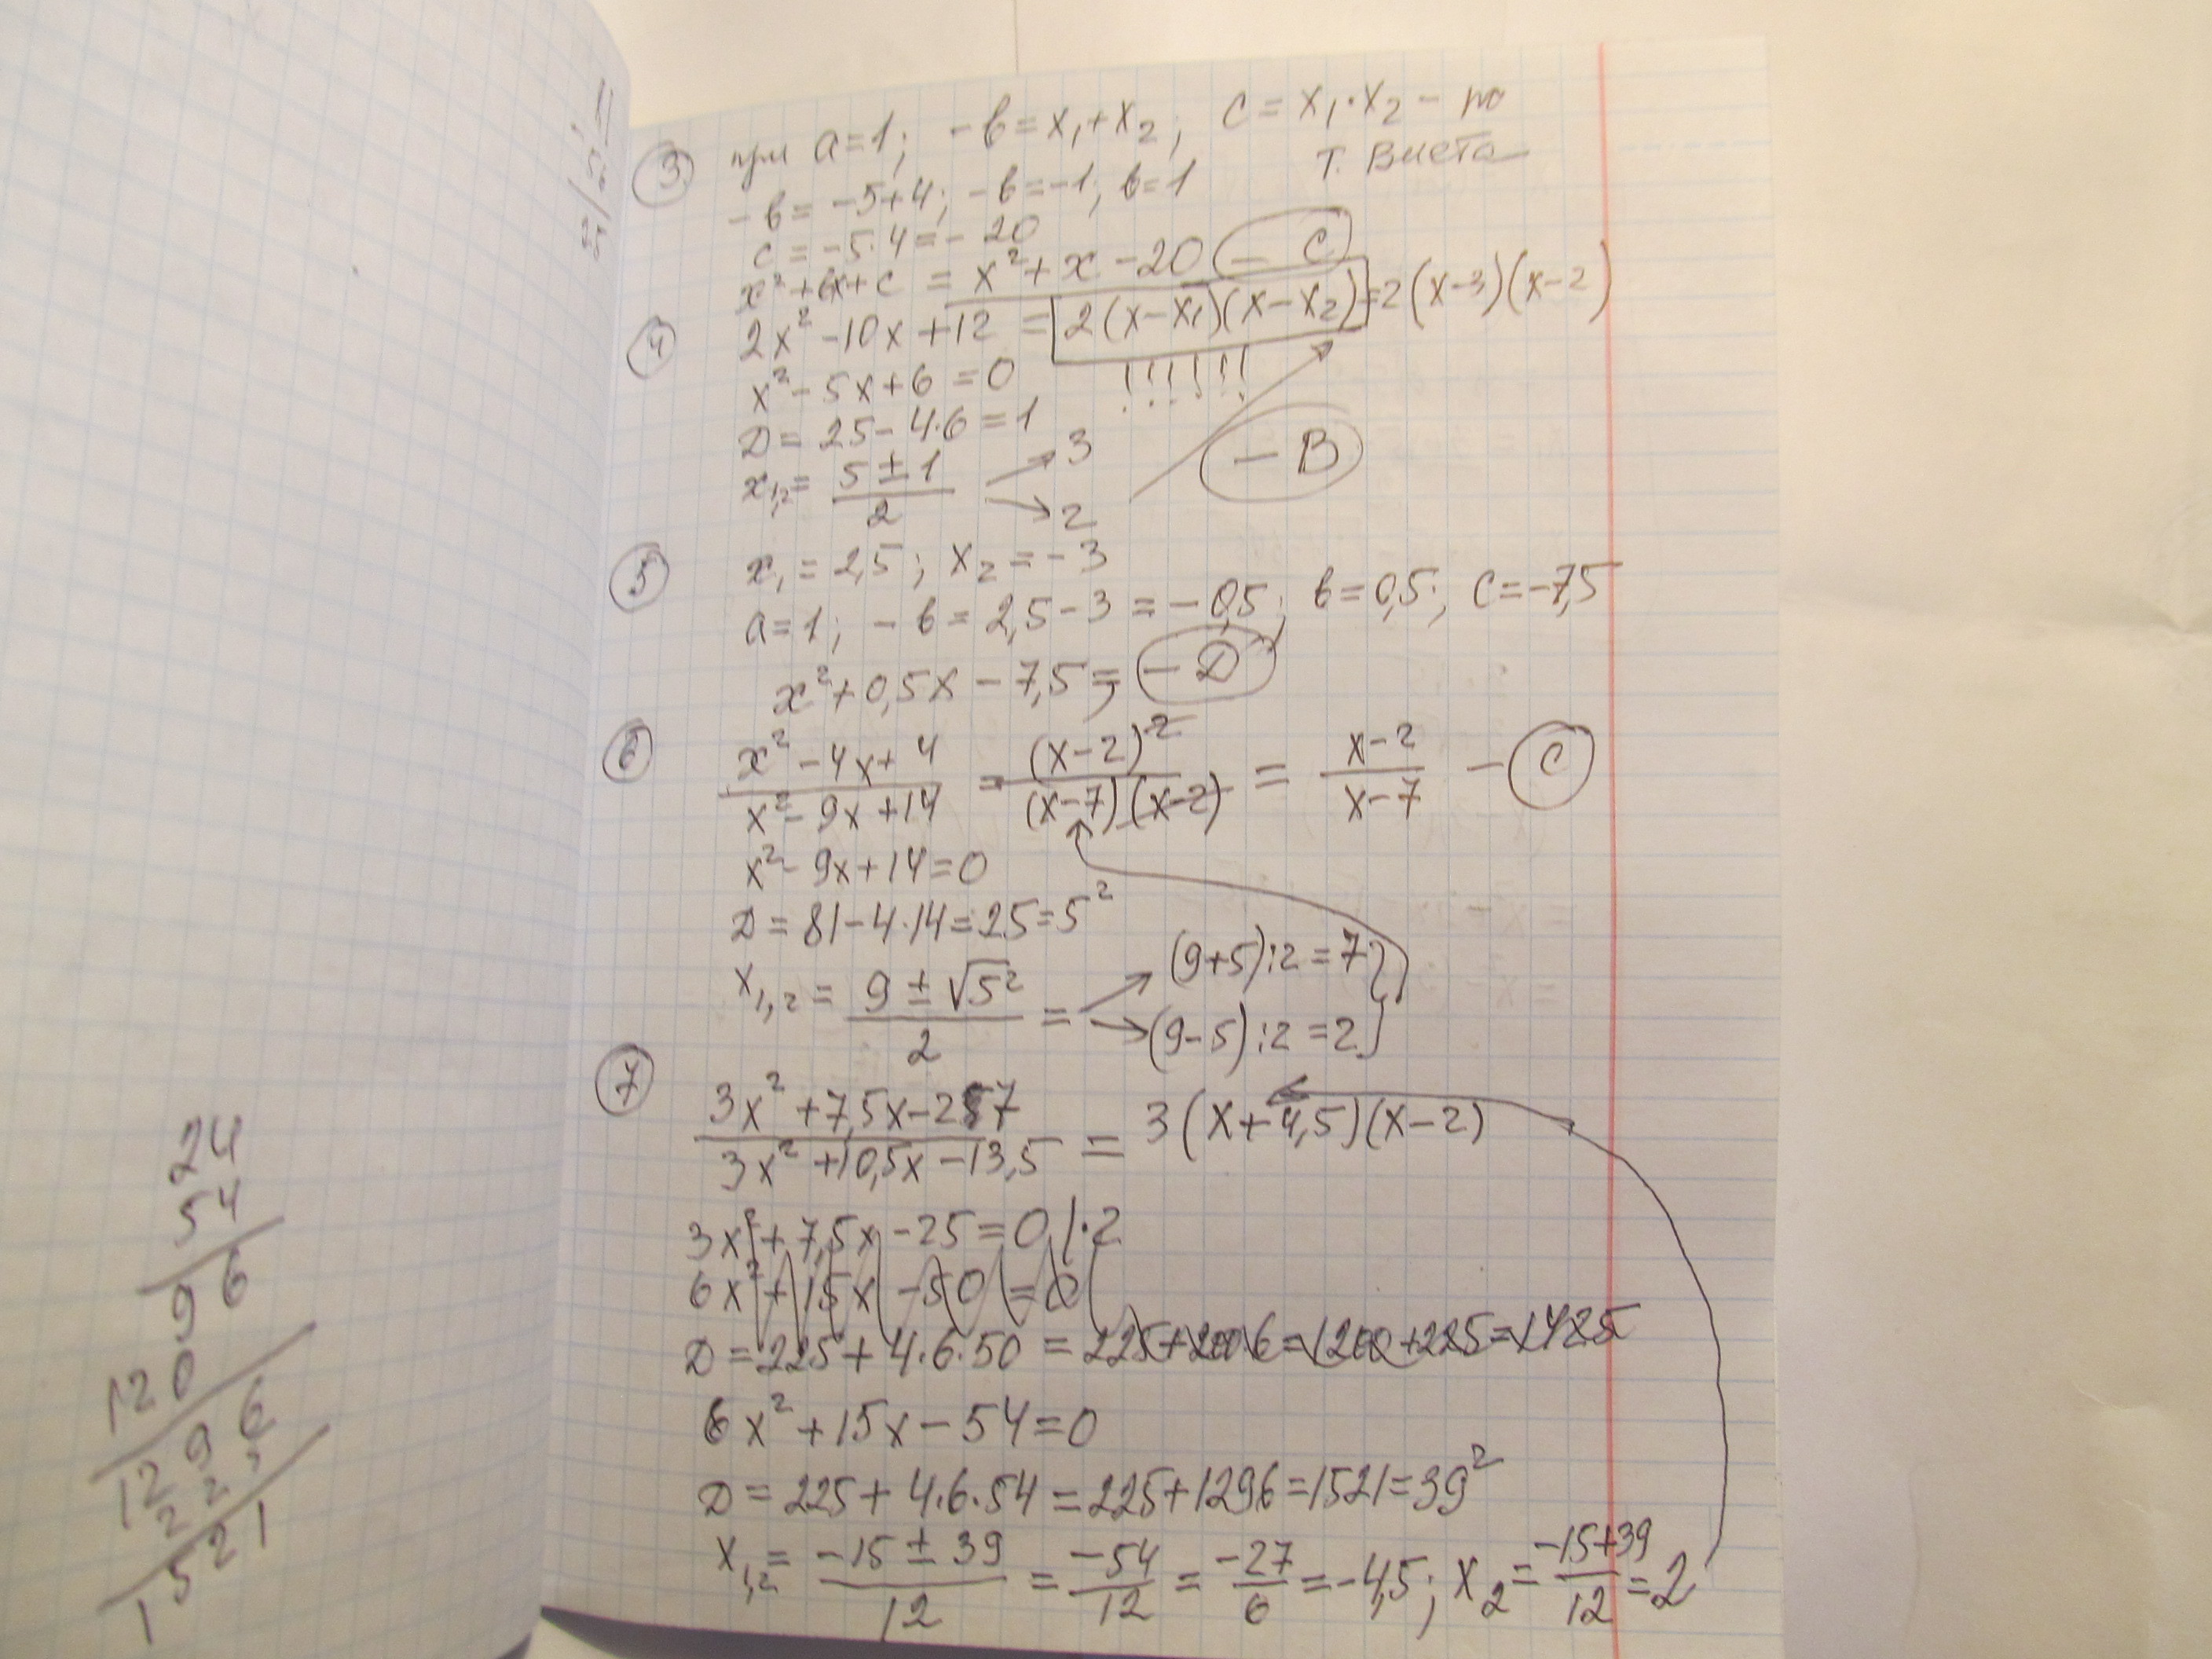 24
54
96
120
1296
225
1521
③ при a=1; -b=x₁+x₂; c=x₁·x₂ - по
т. Виета
-b=-5+4; -b=-1; b=1
c=-5·4=-20
x²+bx+c = x²+x-20 - C
④ 2x²-10x+12 = 2(x-x₁)(x-x₂)=2(x-3)(x-2)
!!!!!!
x²-5x+6=0
D=25-4·6=1
x₁,₂= (5±1)/2 → 3 → 2
- B
⑤ x₁=2,5; x₂=-3
a=1; -b=2,5-3=-0,5; b=0,5; c=-7,5
x²+0,5x-7,5; - D
⑥ (x²-4x+4)/(x²-9x+14) = (x-2)²/((x-7)(x-2)) = (x-2)/(x-7) - C
x²-9x+14=0
D=81-4·14=25=5²
x₁,₂= (9±√5²)/2 = → (9+5):2=7
→ (9-5):2=2
⑦ (3x²+7,5x-27)/(3x²+10,5x-13,5) = 3(x+4,5)(x-2)
3x²+7,5x-25=0 |·2
6x²+15x-50=0
D=225+4·6·50=225+200·6=1200+225=1425
6x²+15x-54=0
D=225+4·6·54=225+1296=1521=39²
x₁,₂= (-15±39)/12 = -54/12 = -27/6 = -4,5; x₂= (-15+39)/12 = 2